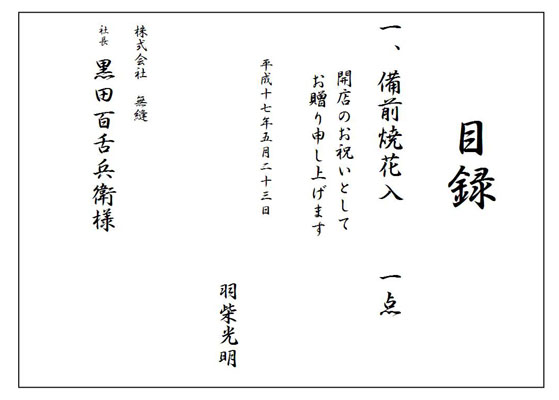 目録
一、備前焼花入 一点
開店のお祝いとして
お贈り申し上げます
平成十七年五月二十三日
羽柴光明
株式会社 無縫
社長 黒田百舌兵衛様